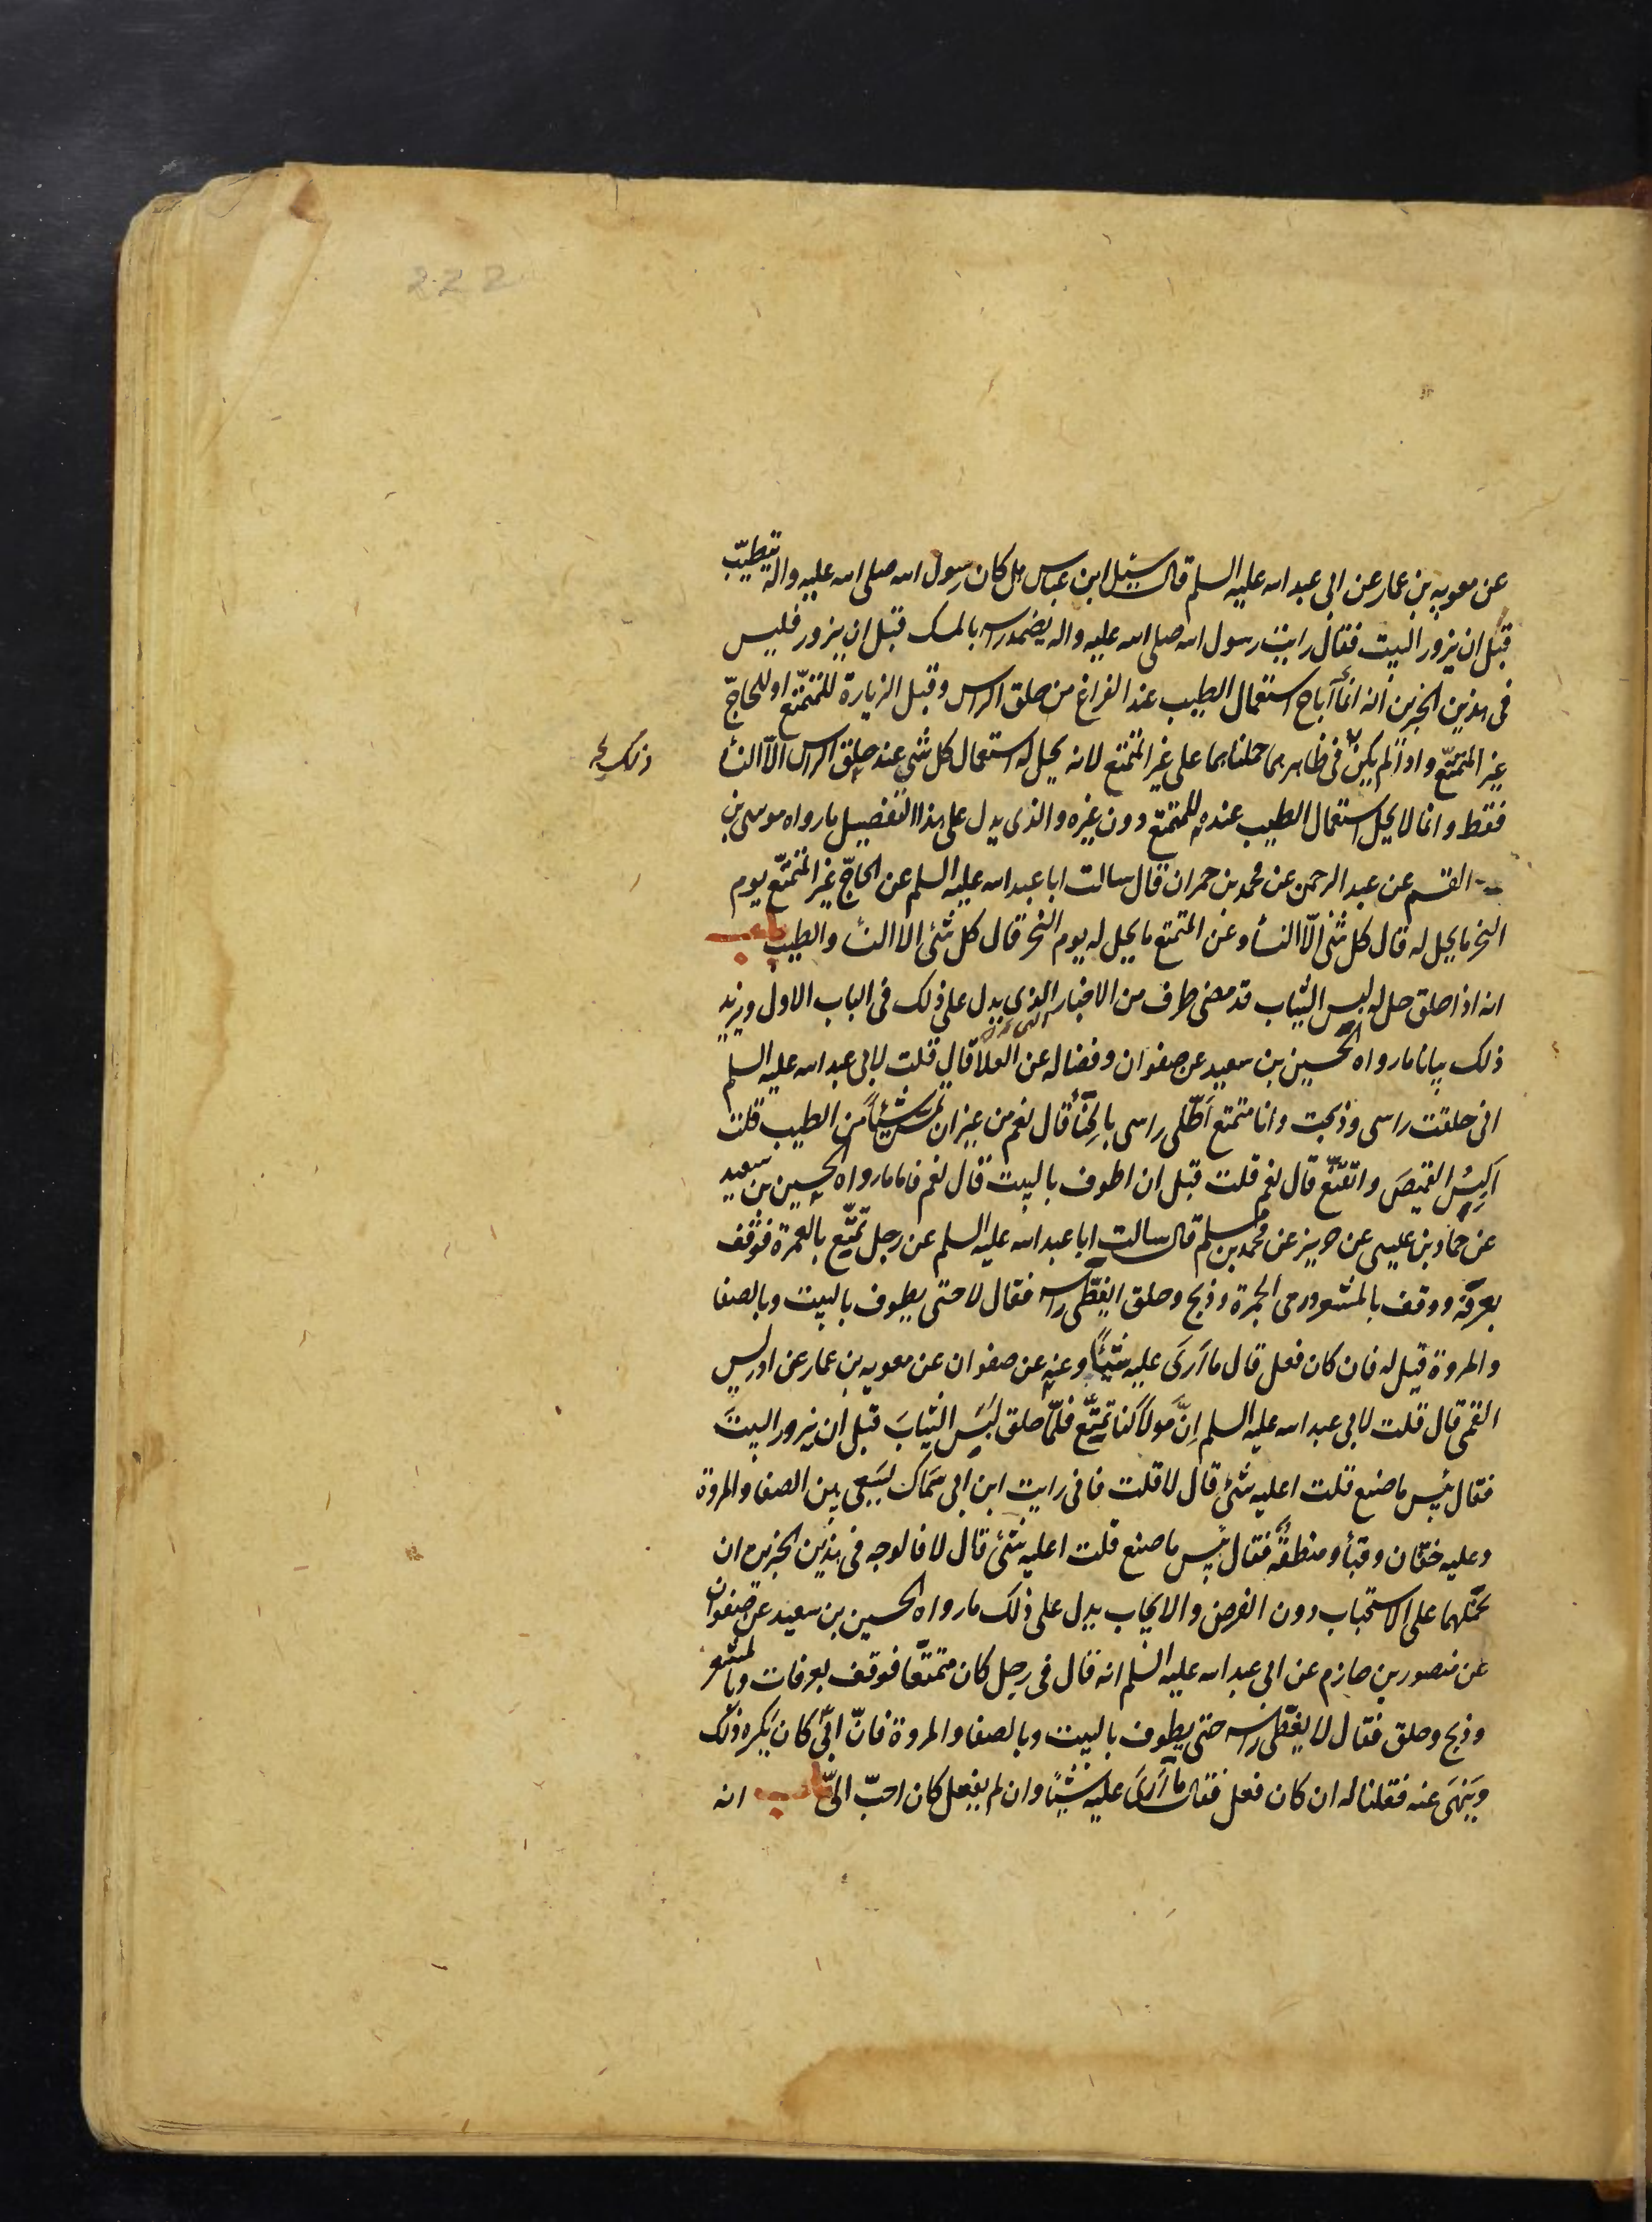 222
عن معويه بن عمار عن ابى عبد اسه عليه السلم قال سئل ابن عباس هل كان رسول اسه صلى اسه عليه واله يتطيّب
قبل ان يزور البيت فقال رايت رسول اسه صلى اسه عليه واله يضمد راسه بالمسك قبل ان يزور فليس
فى هذين الخبرين انه انما اباح استعمال الطيب عند الفراغ من حلق الراس وقبل الزيارة للمتمتّع او للحاجّ
غير المتمتّع واذا لم يكن فى ظاهرهما حملناهما على غير المتمتع لانه يحل له استعمال كل شئ عند حلق الراس الّا النسأ
ذلك
فقط وانما لا يحل استعمال الطيب عنده للمتمتع دون غيره والذى يدل على هذا التفصيل ما رواه موسى بن
القسم عن عبد الرحمن عن محمد بن حمران قال سالت ابا عبد اسه عليه السلم عن الحاجّ غير المتمتّع يوم
النحر ما يحل له قال كل شئ الّا النسأ وعن المتمتع ما يحل له يوم النحر قال كل شئ الا النسأ والطيب باب
انه اذا حلق حل له لبس الثياب قد مضى طرف من الاخبار الذى يدل على ذلك فى الباب الاول ويزيد
ذلك بيانا ما رواه الحسين بن سعيد عن صفوان وفضاله عن العلا قال قلت لابى عبد اسه عليه السلم
انى حلقت راسى وذبحت وانا متمتع اَطّلى راسى بالحِنّأ قال نعم من غير ان تمسّ شيئاً من الطيب قلت
اَلبِسُ القميصَ واتقنّع قال نعم قلت قبل ان اطوف بالبيت قال نعم فاما ما رواه الحسين بن سعيد
عن حماد بن عيسى عن حريز عن محمد بن مسلم قال سالت ابا عبد اسه عليه السلم عن رجل تمتّع بالعمرة فوقف
بعرفة ووقف بالمشعر ورمى الجمرة وذبح وحلق ايغطّى راسه فقال لا حتى يطوف بالبيت وبالصفا
والمروة قيل له فان كان فعل قال ما اَرَى عليه شيئاً وعنه عن صفوان عن معويه بن عمار عن ادريس
القمى قال قلت لابى عبد اسه عليه السلم اِنّ مولاً لنا تمتّع فلمّا حلق لبَس الثيابَ قبل ان يزور البيتَ
فقال بئس ما صنع قلت اعليه شئ قال لا قلت فانى رايت ابن ابى سَمّاك يَسعى بين الصفا والمروة
وعليه خفّان وقبأ ومنطقةٌ فقال بئس ما صنع قلت اعليه شئ قال لا فالوجه فى هذين الخبرين ان
نحملهما على الاستحباب دون الفرض والايجاب يدل على ذلك ما رواه الحسين بن سعيد عن صفوان
عن منصور بن حازم عن ابى عبد اسه عليه السلم انه قال فى رجل كان متمتّعا فوقف بعرفات وبالمشعر
وذبح وحلق فقال لا يغطّى راسه حتى يطوف بالبيت وبالصفا والمروة فانّ ابىّ كان يَكره ذلك
ويَنهَى عنه فقلنا له ان كان فعل فقال ما اَرَى عليه شيئاً وان لم يفعل كان احبّ الىّ باب انه